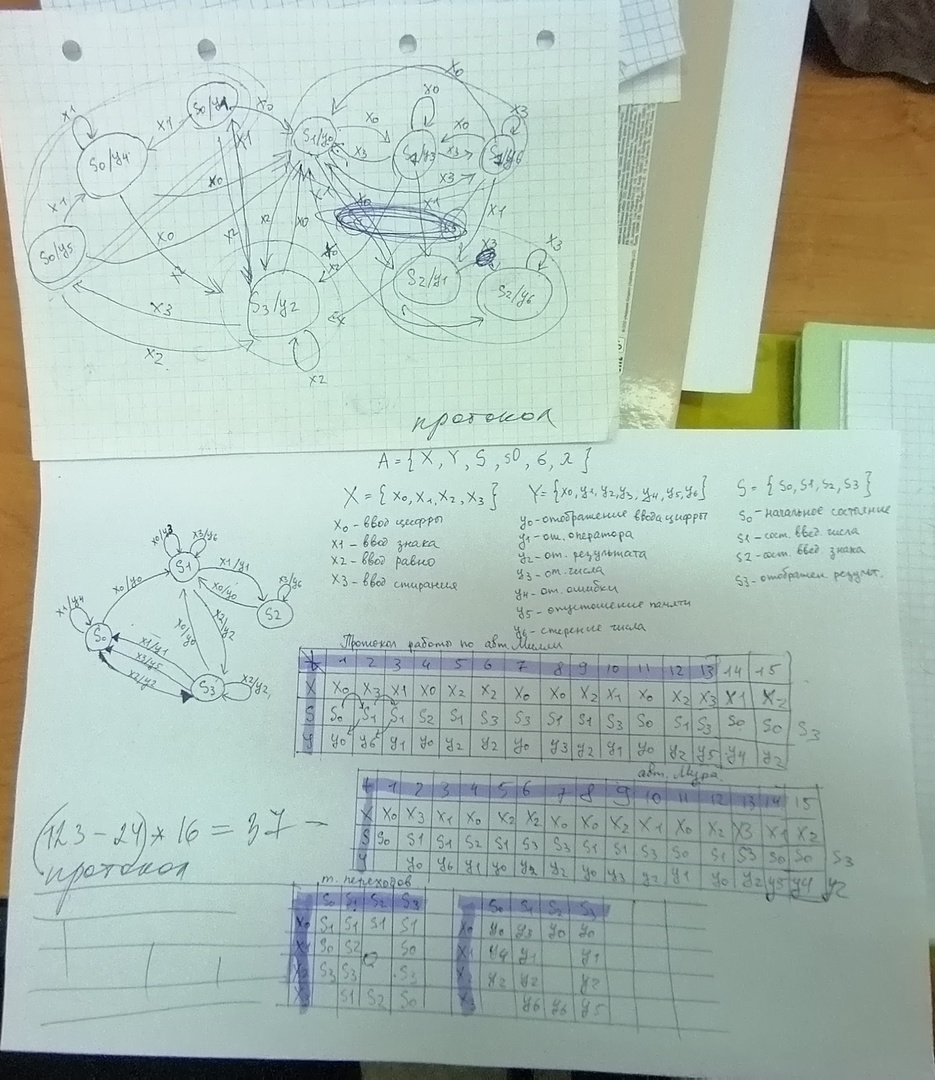 x1
S0/y4
x1
x0
S1/y0
x0
x0
x0
x3
x0
x3
x1
S0/y4
x0
x3
x3
x1
S0/y5
x0
x2
x2
x0
x1
x1
S3/y2
x2
S2/y1
x3
S2/y6
x3
x3
x2
x2
протокол
A = {X, Y, S, s0, б, λ}
X = {x0, x1, x2, x3}
x0 - ввод цифры
x1 - ввод знака
x2 - ввод равно
x3 - ввод стирания
Y = {x0, y1, y2, y3, y4, y5, y6}
y0 - отображение ввода цифры
y1 - от. оператора
y2 - от. результата
y3 - от. числа
y4 - от. ошибки
y5 - опустошение памяти
y6 - стерение числа
S = {S0, S1, S2, S3}
S0 - начальное состояние
S1 - сост. ввод. числа
S2 - сост. ввод знака
S3 - отображен. результ.
x0/y3
x3/y6
S1
x1/y1
x0/y0
x3/y6
S2
x0/y0
x1/y4
S0
x0/y0
x2/y2
x1/y1
x3/y5
x2/y2
S3
x2/y2
Протокол работы по авт. Мили
t 1 2 3 4 5 6 7 8 9 10 11 12 13 14 15
X x0 x3 x1 x0 x2 x2 x0 x0 x2 x1 x0 x2 x3 x1 x2
S S0 S1 S1 S2 S1 S3 S3 S1 S1 S3 S0 S1 S3 S0 S0 S3
Y y0 y6 y1 y0 y2 y2 y0 y3 y2 y1 y0 y2 y5 y4 y2
авт. Мура.
t 1 2 3 4 5 6 7 8 9 10 11 12 13 14 15
X x0 x3 x1 x0 x2 x2 x0 x0 x2 x1 x0 x2 x3 x1 x2
S S0 S1 S1 S2 S1 S3 S3 S1 S1 S3 S0 S1 S3 S0 S0 S3
Y y0 y6 y1 y0 y2 y2 y0 y3 y2 y1 y0 y2 y5 y4 y2
(123 - 24) * 16 = 37 -
протокол
т. переходов
S0 S1 S2 S3
x0 S1 S1 S1 S1
x1 S0 S2 S0
x2 S3 S3 S3
S1 S2 S0
S0 S1 S2 S3
x0 y0 y3 y0 y0
x1 y4 y1 y1
x2 y2 y2 y2
x3 y6 y6 y5